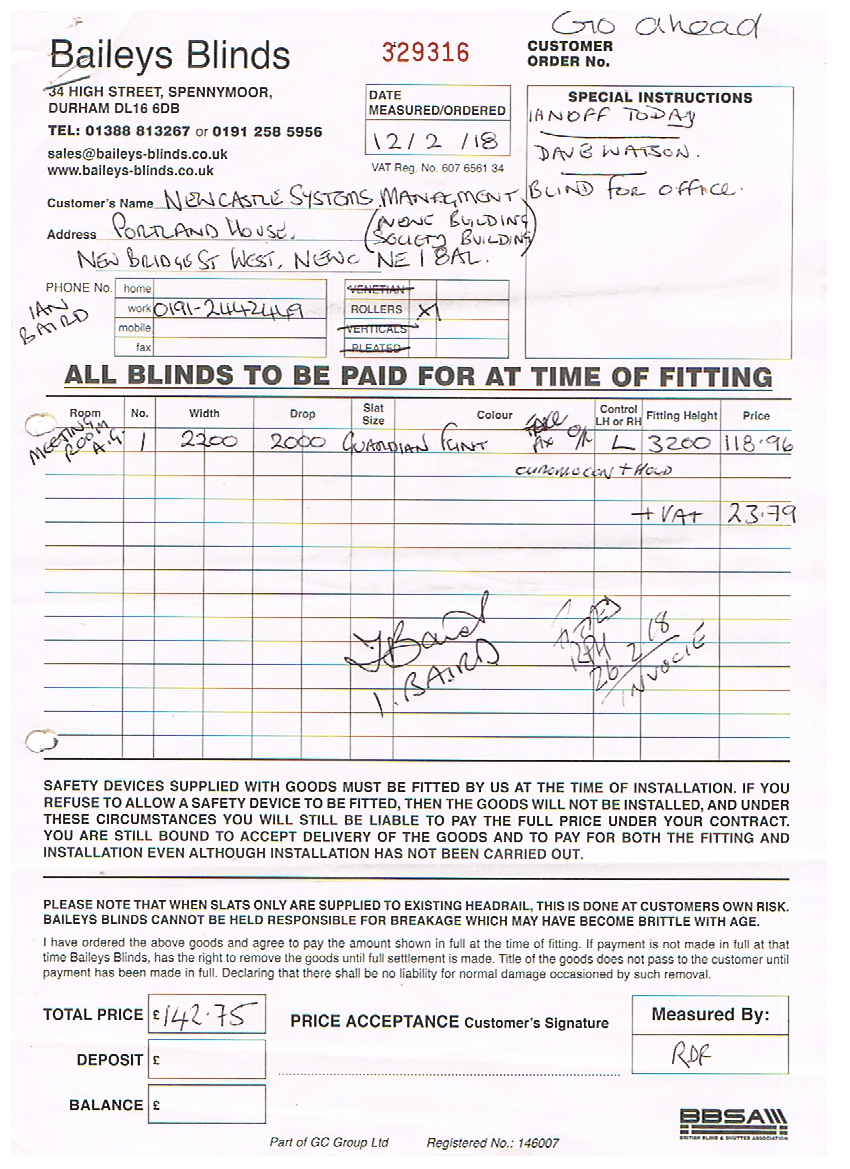 Go ahead
Baileys Blinds
329316
CUSTOMER
ORDER No.
34 HIGH STREET, SPENNYMOOR,
DURHAM DL16 6DB
TEL: 01388 813267 or 0191 258 5956
sales@baileys-blinds.co.uk
www.baileys-blinds.co.uk
DATE
MEASURED/ORDERED
12/2/18
VAT Reg. No. 607 6561 34
SPECIAL INSTRUCTIONS
IAN OFF TODAY
DAVE WATSON.
BLIND FOR OFFICE.
Customer's Name NEWCASTLE SYSTEMS MANAGMENT
Address PORTLAND HOUSE, (NEWC BUILDING
SOCIETY BUILDING)
NEW BRIDGE ST WEST, NEWC NE1 8AL.
PHONE No. home
work 0191-2442449
mobile
fax
IAN
BAIRD
VENETIAN
ROLLERS X1
VERTICALS
PLEATED
ALL BLINDS TO BE PAID FOR AT TIME OF FITTING
Room No. Width Drop Slat Size Colour Control LH or RH Fitting Height Price
MEETING ROOM 1 2200 2000 GUARDIAN FLINT L 3200 118.96
+ VAT 23.79
I. BAIRD
26.2.18
INVOCIE
SAFETY DEVICES SUPPLIED WITH GOODS MUST BE FITTED BY US AT THE TIME OF INSTALLATION. IF YOU
REFUSE TO ALLOW A SAFETY DEVICE TO BE FITTED, THEN THE GOODS WILL NOT BE INSTALLED, AND UNDER
THESE CIRCUMSTANCES YOU WILL STILL BE LIABLE TO PAY THE FULL PRICE UNDER YOUR CONTRACT.
YOU ARE STILL BOUND TO ACCEPT DELIVERY OF THE GOODS AND TO PAY FOR BOTH THE FITTING AND
INSTALLATION EVEN ALTHOUGH INSTALLATION HAS NOT BEEN CARRIED OUT.
PLEASE NOTE THAT WHEN SLATS ONLY ARE SUPPLIED TO EXISTING HEADRAIL, THIS IS DONE AT CUSTOMERS OWN RISK.
BAILEYS BLINDS CANNOT BE HELD RESPONSIBLE FOR BREAKAGE WHICH MAY HAVE BECOME BRITTLE WITH AGE.
I have ordered the above goods and agree to pay the amount shown in full at the time of fitting. If payment is not made in full at that
time Baileys Blinds, has the right to remove the goods until full settlement is made. Title of the goods does not pass to the customer until
payment has been made in full. Declaring that there shall be no liability for normal damage occasioned by such removal.
TOTAL PRICE £142.75
DEPOSIT £
BALANCE £
PRICE ACCEPTANCE Customer's Signature
Measured By:
RDF
BBSA
BRITISH BLIND & SHUTTER ASSOCIATION
Part of GC Group Ltd Registered No.: 146007